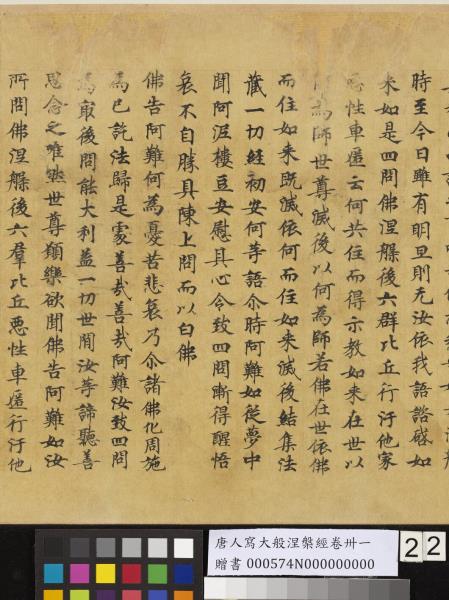 時至今日雖有明旦則无汝依我語諮啓如
來如是四問佛涅槃後六群比丘行汙他家
惡性車匿云何共住而得示教如來在世以
為師世尊滅後以何為師若佛在世依佛
而住如來既滅依何而住如來滅後結集法
藏一切經初安何等語尒時阿難如從夢中
聞阿泥樓豆安慰其心令致四問漸得醒悟
哀不自勝具陳上問而以白佛
佛告阿難何為憂苦悲哀乃尒諸佛化周施
為已訖法歸是處善哉善哉阿難汝致四問
為㝡後問能大利益一切世間汝等諦聽善
思念之唯然世尊願樂欲聞佛告阿難如汝
所問佛涅槃後六羣比丘惡性車匿行汙他
唐人寫大般涅槃經卷卅一
贈書 000574N000000000
22